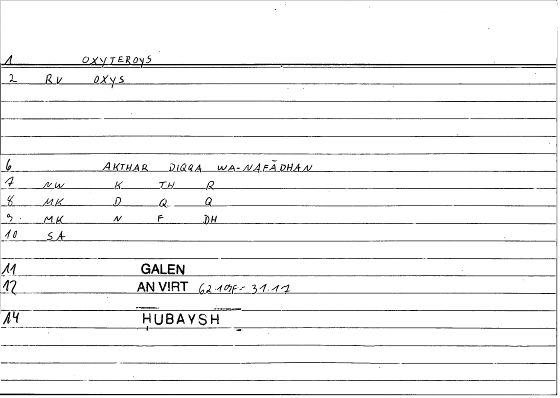 1 OXYTEROYS
2 RV OXYS
6 AKTHAR DIQQA WA-NAFĀDHAN
7 NW K TH R
8 MK D Q Q
9. MK N F DH
10 SA
11 GALEN
12 AN VIRT 62.19F- 31.17
14 HUBAYSH